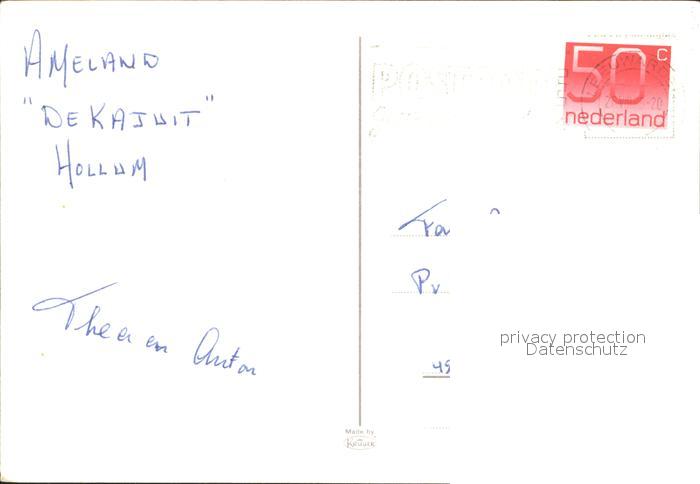 AMELAND
"DE KAJUIT"
HOLLUM
Thea en Anton
50 c
nederland
Fa
Pv
45
privacy protection
Datenschutz
Made by
KRÜGER